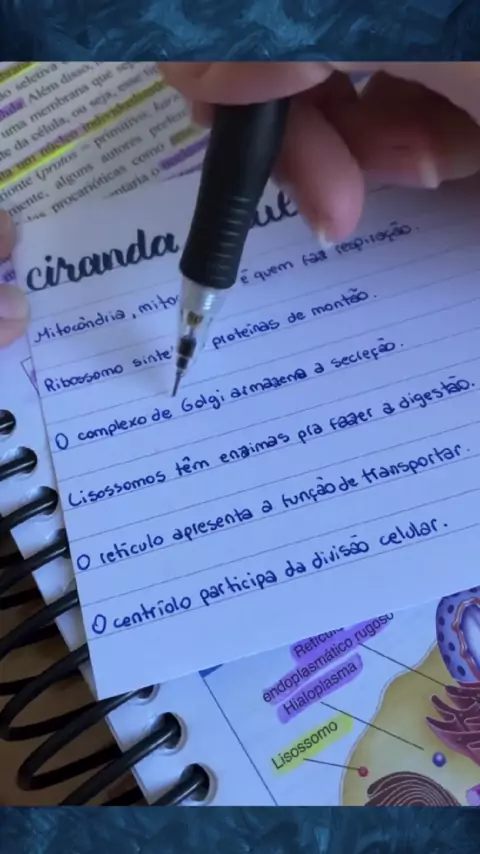 seletiva
Além disso,
uma membrana que
te da célula, ou seja,
um núcleo individualizado
(protos = primitivo,
mente, alguns autores
procarióticas como
ciranda
Mitocôndria, é quem faz respiração.
Ribossomo proteínas de montão.
O complexo de Golgi armazena a secreção.
Lisossomos têm enzimas pra fazer a digestão.
O retículo apresenta a função de transportar.
O centríolo participa da divisão celular.
endoplasmático rugoso
Hialoplasma
Lisossomo